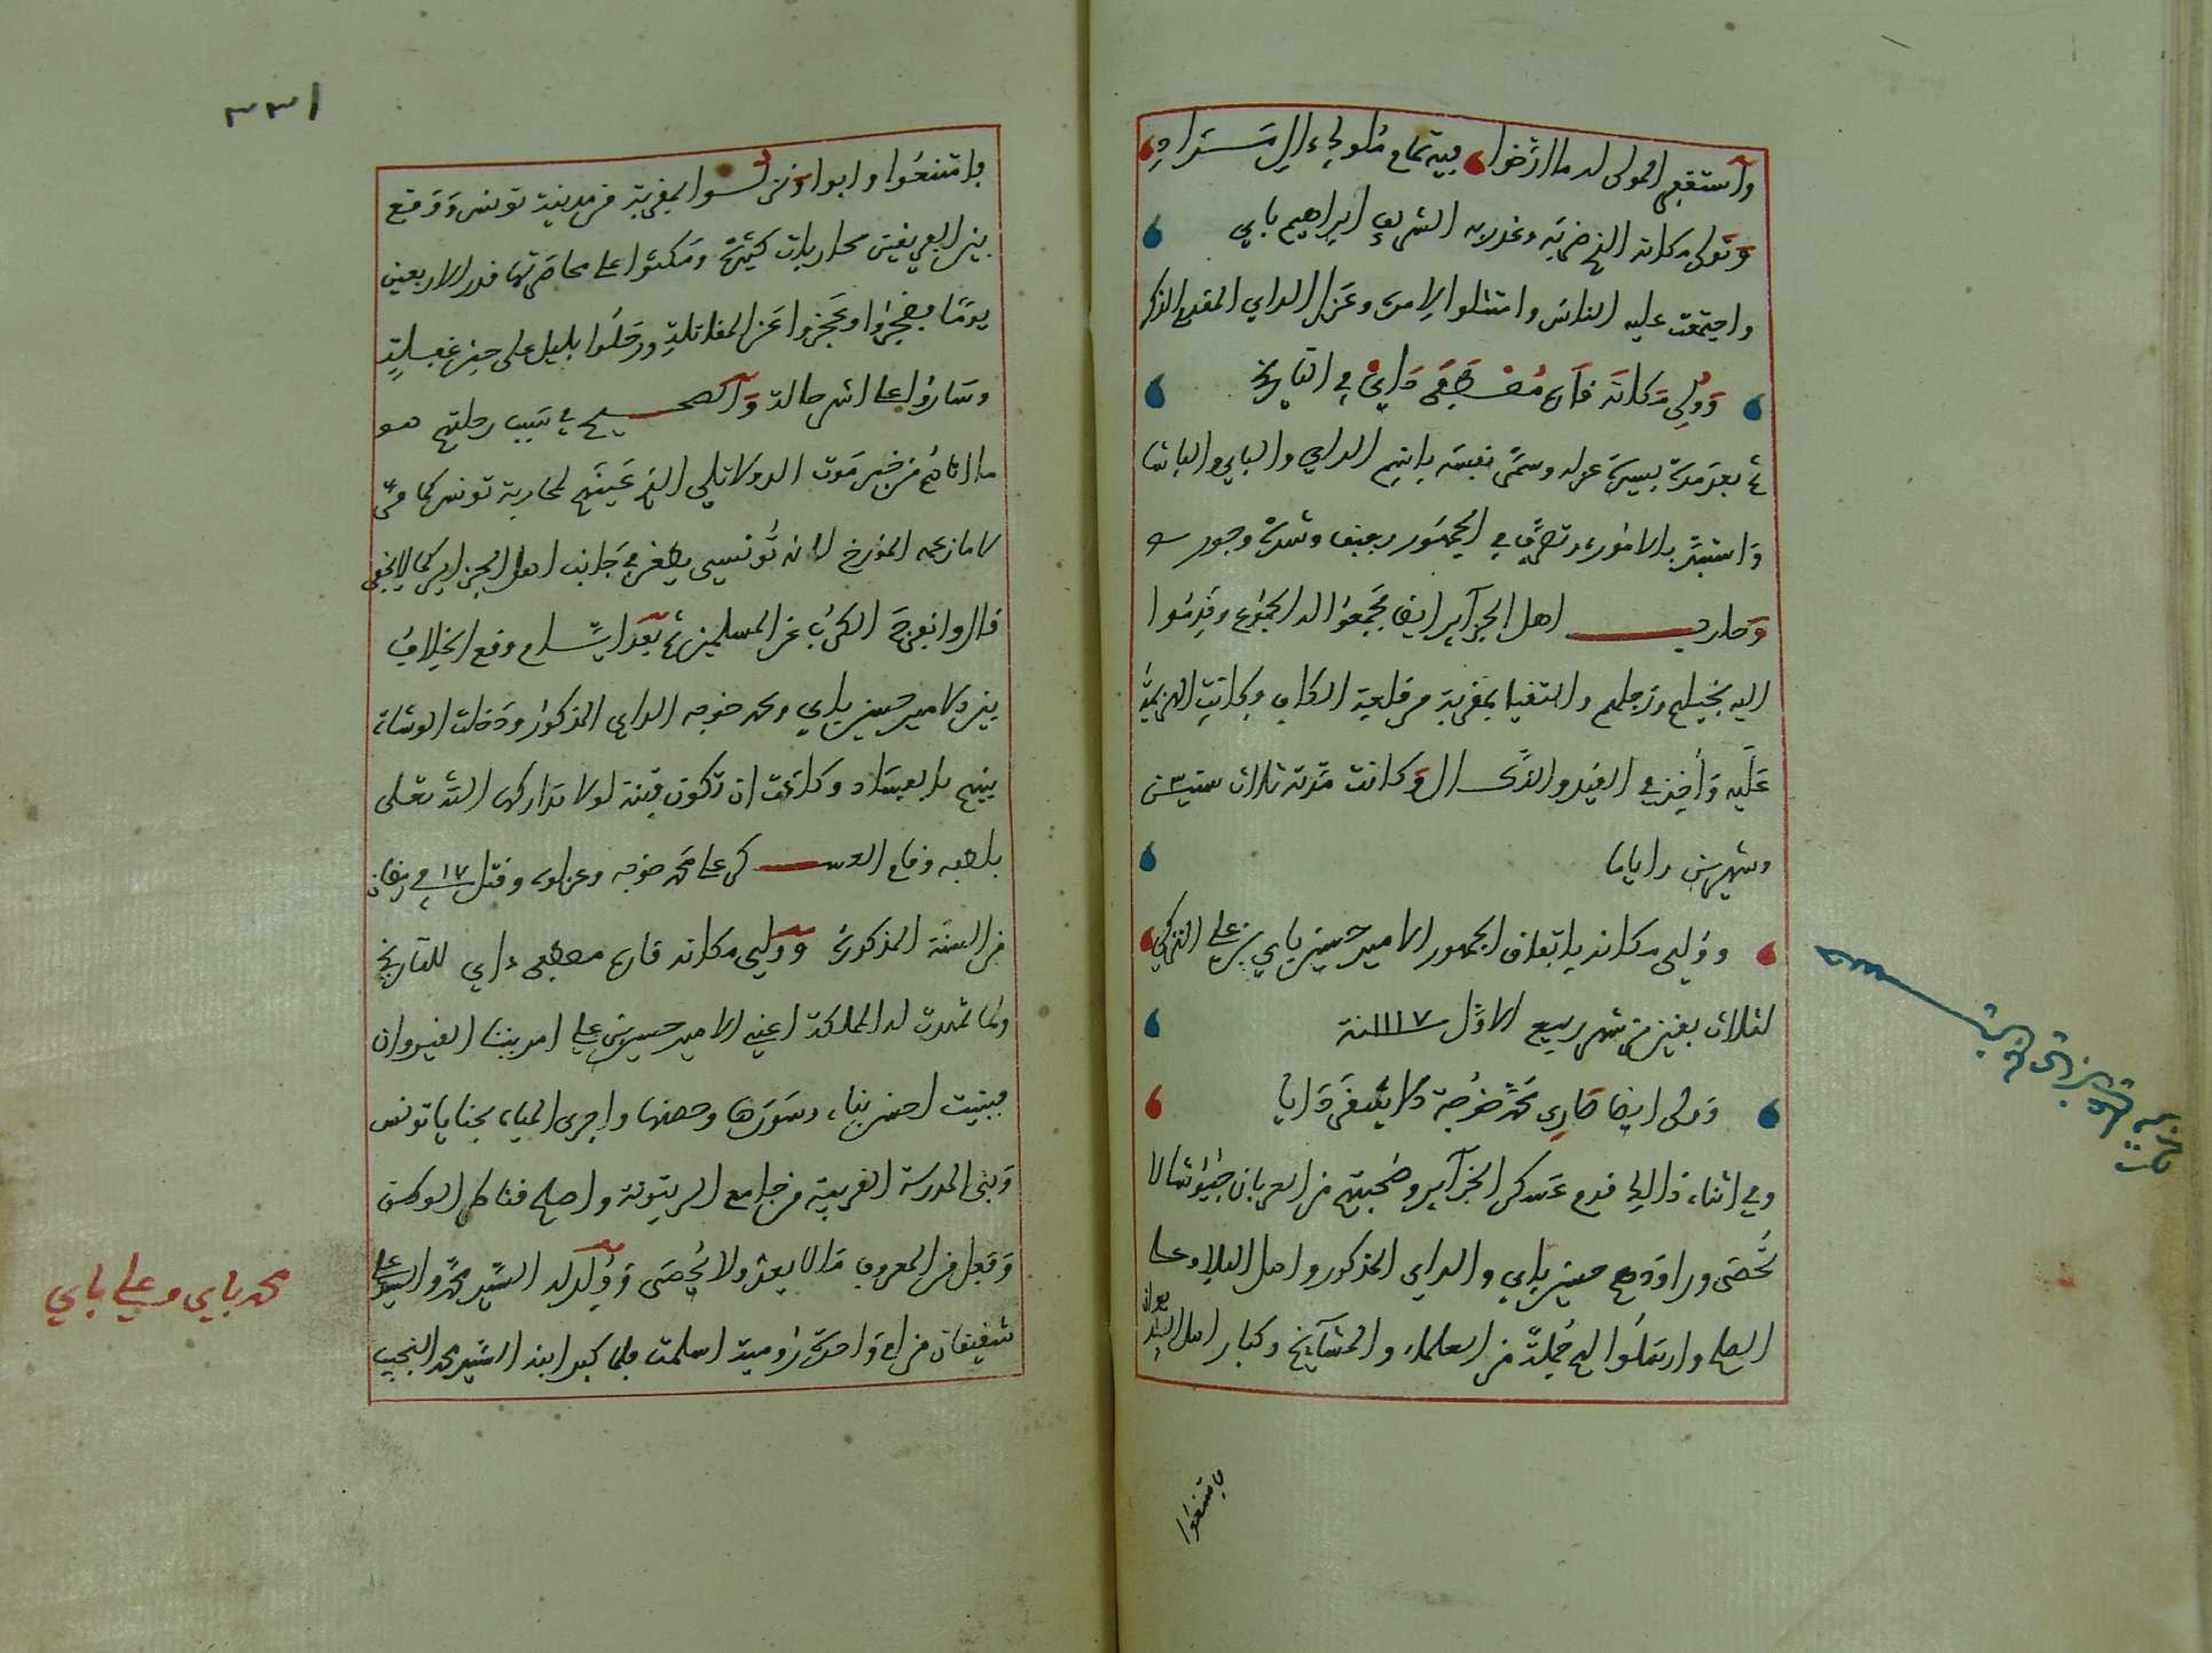 وتولى مكانه الذي ضربه وغدر به الشريف إبراهيم باي
واجتمعت عليه الناس وامتثلوا لأمره وعزل الداي المقدم الذكر
وولي مكانه قارة مصطفى داي في التاريخ
ثم بعد مدة يسيرة عزله وسمى نفسه باسم الداي والباي والباشا
واستبد بالأمور وتصرف في الجمهور بعنف وشدة وجور
وحارب أهل الجزاير ايضا فجمعوا له الجموع وقدموا
اليه بخيلهم ورجلهم والتقيا بمقربة من قلعة الكاف وكانت الهزيمة
عليه وأخذ في القيد والنكال وكانت مدته ثلاث سنين
وشهرين واياما
وولي مكانه باتفاق الجمهور الامير حسين باي بن علي التركي
لثلاث بقين من شهر ربيع الأول سنة ١١١٧
وولى ايضا قارة محمد خوجة دايا
وفي اثناء ذالك قدم عسكر الجزاير وصحبتهم من العربان جيوشا لا
تحصى وراودهم حسين باي والداي المذكور واهل البلاد على
الصلح وارسلوا لهم جملة من العلماء والمشايخ وكبار اهل الديوان
فامتنعوا
٣٣١
فامتنعوا وابوا ونزلوا بمقربة من مدينة تونس ووقع
بين الفريقين محاربات كثيرة ومكثوا على محاصرتها قدر الاربعين
يوما فضجروا وعجزوا عن المقاتلة ورحلوا بليل على حين غفلة
وساروا على اشر حالة والصحيح في سبب رحلتهم هو
ما اتاهم من خبر موت الدولاتلي الذي عينهم لمحاربة تونس كما مر
لا ما زعمه المؤرخ لانه تونسي يطعن في جانب اهل الجزاير كما لا يخفى
قالوا نفرج الكرب عن المسلمين ثم بعد ايام وقع الخلاف
بين الامير حسين باي ومحمد خوجه الداي المذكور ودخلت الوشاة
بينهم بالفساد وكادت ان تكون فتنة لولا تداركها الله تعلى
بلطفه وقام العسكر على محمد خوجه وعزلوه وقتل ١٧ في رمضان
من السنة المذكورة وولي مكانه قارة مصطفى داي للتاريخ
ولما تمهدت له المملكة اعني الامير حسين بن علي امر ببناء القيروان
فبنيت احسن بناء وسورها وحصنها واجرى المياه بحنايا تونس
وبنى المدرسة القريبة من جامع الزيتونة واصلح قناطر الوطن
وفعل من المعروف ما لا يعد ولا يحصى وولد له السيد محمد والسيد علي
شقيقان من ام واحدة رومية اسلمت فلما كبر ابنه السيد محمد النجيب
محمد باي وعلي باي